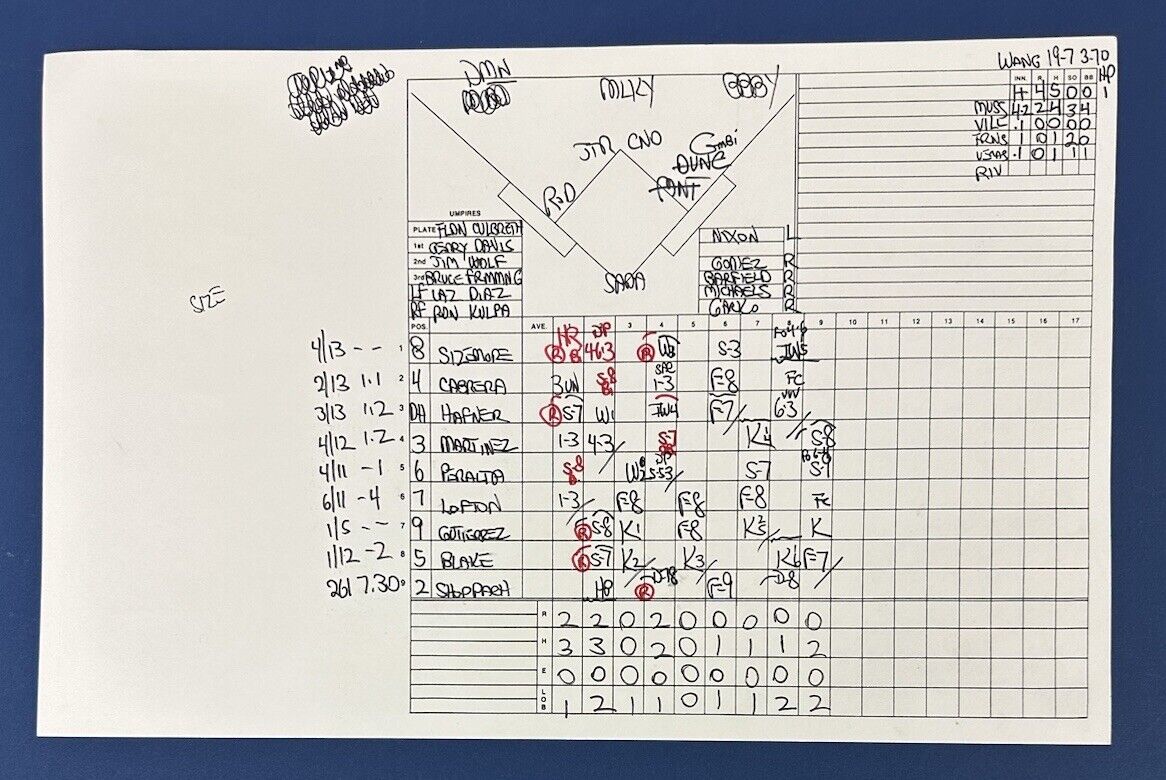 WANG 19-7 3.70
HP
INN R H SO BB
4 4 5 0 0 1
MUSS 4.2 2 4 3 4
VILL .1 0 0 0 0
FRNS .1 0 1 2 0
VERAS .1 0 1 1 1
RIV
DMN MLKY BBBY
JTR CNO GmBi
DUNC
RoD
SADA
UMPIRES
PLATE FLDN CULBRETH
1st GERRY DAVIS
2nd JIM WOLF
3rd BRUCE FRMMNG
LF LAZ DIAZ
RF RON KULPA
NIXON L
GOMEZ R
BARFIELD R
MICHAELS R
GARKO R
SIZE
POS. AVE. 3 4 5 6 7 8 9 10 11 12 13 14 15 16 17
4/13 - - 1 8 SIZEMORE HR R DP 46-3 R S-3 IW5
2/13 1.1 2 4 CABRERA BUN S-8 SAC 1-3 F-8 FC
3/13 1.2 3 DH HAFNER R S-7 W1 IW4 F-7 6-3
4/12 1.2 4 3 MARTINEZ 1-3 4-3 S-7 K4 S-8
4/11 -1 5 6 PERALTA S-8 W2 DP 5-3 S-7 S-9
6/11 -4 6 7 LOFTON 1-3 F-8 F-8 F-8 FC
1/5 - - 7 9 GUTIERREZ R S-8 K1 F-8 K5 K
1/12 -2 8 5 BLAKE R S-7 K2 K3 K6 F-7
261 7.30 9 2 SHOPPACH HP R D-78 F-9 D-8
R 2 2 0 2 0 0 0 0 0
H 3 3 0 2 0 1 1 1 2
E 0 0 0 0 0 0 0 0 0
LOB 1 2 1 1 0 1 1 2 2